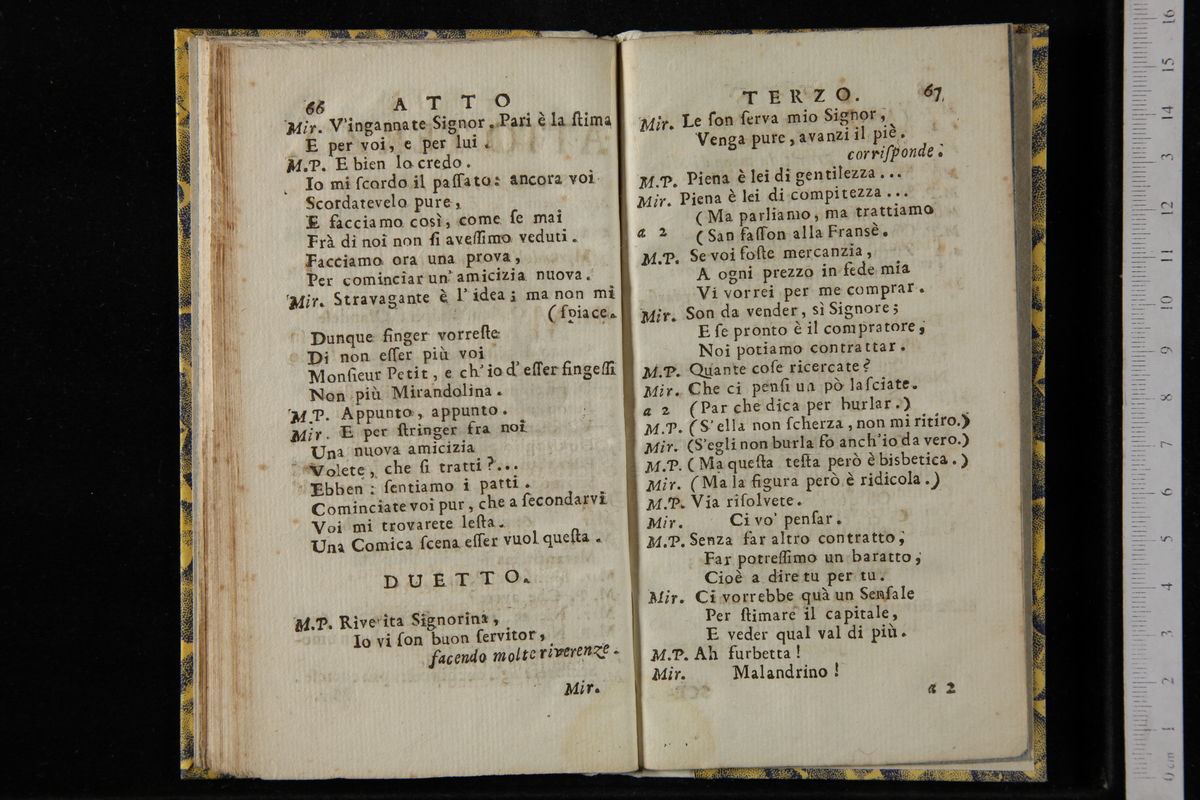 66 ATTO
Mir. V'ingannate Signor. Pari è la ſtima
E per voi, e per lui.
M.P. E bien lo credo.
Io mi ſcordo il paſſato: ancora voi
Scordatevelo pure,
E facciamo così, come ſe mai
Frà di noi non ſi aveſſimo veduti.
Facciamo ora una prova,
Per cominciar un' amicizia nuova.
Mir. Stravagante è l' idea; ma non mi
(ſpiace.
Dunque finger vorreſte
Di non eſſer più voi
Monſieur Petit, e ch'io d'eſſer fingeſſi
Non più Mirandolina.
M.P. Appunto, appunto.
Mir. E per ſtringer fra noi
Una nuova amicizia
Volete, che ſi tratti?...
Ebben: ſentiamo i patti.
Cominciate voi pur, che a ſecondarvi
Voi mi trovarete leſta.
Una Comica ſcena eſſer vuol queſta.
DUETTO.
M.P. Riverita Signorina,
Io vi ſon buon ſervitor,
facendo molte riverenze.
Mir.
TERZO. 67
Mir. Le ſon ſerva mio Signor,
Venga pure, avanzi il piè.
corriſponde.
M.P. Piena è lei di gentilezza...
Mir. Piena è lei di compitezza...
(Ma parliamo, ma trattiamo
a 2 (San faſſon alla Fransè.
M.P. Se voi foſte mercanzia,
A ogni prezzo in fede mia
Vi vorrei per me comprar.
Mir. Son da vender, sì Signore;
E ſe pronto è il compratore,
Noi potiamo contrattar.
M.P. Quante coſe ricercate?
Mir. Che ci penſi un pò laſciate.
a 2 (Par che dica per burlar.)
M.P. (S'ella non ſcherza, non mi ritiro.)
Mir. (S'egli non burla fo anch'io da vero.)
M.P. (Ma queſta teſta però è bisbetica.)
Mir. (Ma la figura però è ridicola.)
M.P. Via riſolvete.
Mir. Ci vo' penſar.
M.P. Senza far altro contratto,
Far potreſſimo un baratto,
Cioè a dire tu per tu.
Mir. Ci vorrebbe quà un Senſale
Per ſtimare il capitale,
E veder qual val di più.
M.P. Ah furbetta!
Mir. Malandrino!
a 2